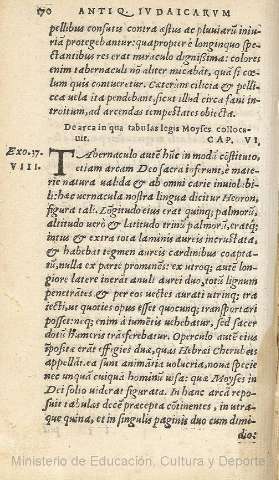 170 ANTIQ. IVDAICARVM
pellibus consutis contra æstus ac pluviarũ iniu
ria protegebantur: quapropter è longinquo spe
ctantibus res erat miraculo dignissima: colores
enim tabernaculi nõ aliter micabãt, quã si cœ
lum quis contueretur. Cæterùm cilicia & pelli
cea uela ita pendebant, sicut illud circa fani in-
troitum, ad arcendas tempestates obiecta.
De arca in qua tabulas legis Moyses colloca-
uit. CAP. VI,
Exo. 37.
VIII.
TAbernaculo autẽ hũc in modũ cõstituto,
etiam arcam Deo sacrã iusserunt, è mate
rie natura valida & ab omni carie inuiolabi-
li: hæc vernacula nostra lingua dicitur Heoron,
figura tali. Lõgitudo eius erat quinq; palmorũ,
altitudo uerò & latitudo trinũ palmorũ, cratq;
intus & extra tota laminis aureis incrustata,
& habebat tegmen aureis cardinibus coapta-
tũ, nulla ex parte prominẽs: ex utroq; autẽ lon
giore latere inerãt anuli aurei duo, totũ lignum
penetrãtes & per eos vectes aurati utrinq; tra
iecti, ut quoties opus esset quocunq; transportari
posset: neq; enim à iumẽtis uehebatur, sed sacer
dotũ humeris trãsferebatur. Operculo autẽ eius
impositæ erãt effigies duæ, quas Hebræi Cherubeis
appellãt. ea sunt animãtia uolucria, noua specie
nec unquã cuiquã hominũ uisa: quæ Moyses in
Dei solio viderat figurata. In hanc arcã repo-
suit tabulas decẽ præcepta cõtinentes, in utra-
que quina, et in singulis paginis duo cum dimi
dio:
Ministerio de Educación, Cultura y Deporte